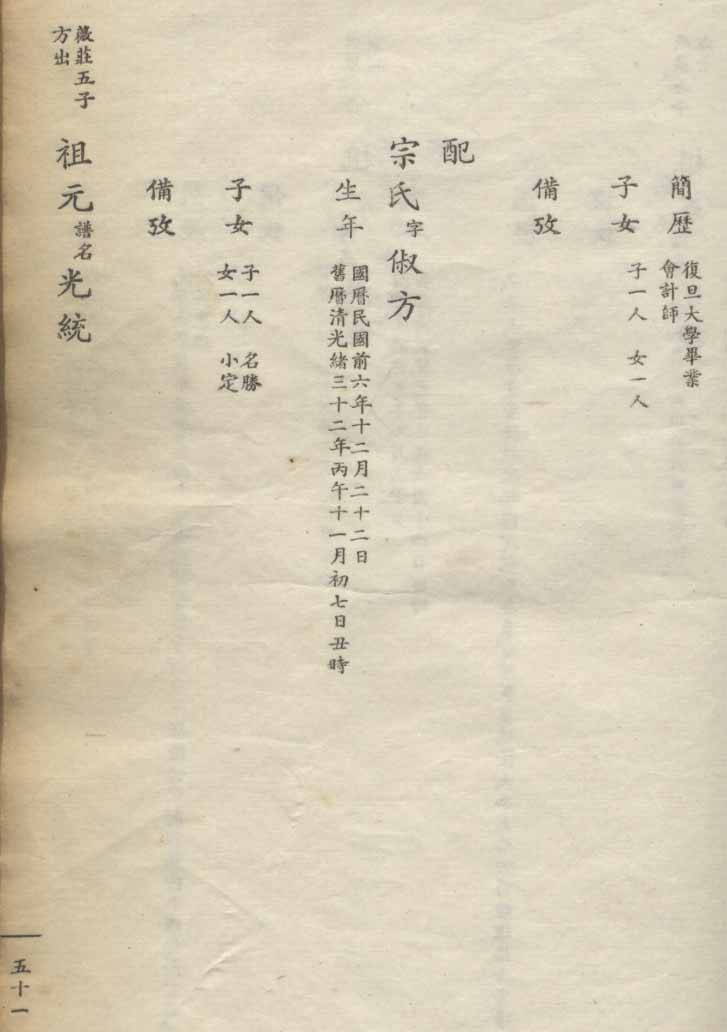 簡歷
復旦大學畢業
會計師
子女
子一人 女一人
備攷
配
宗氏字俶方
生年
國曆民國前六年十二月二十二日
舊曆清光緒三十二年丙午十一月初七日丑時
子女
子一人 名勝
女一人 小定
備攷
薇莊五子
方出
祖元譜名光統
五十一